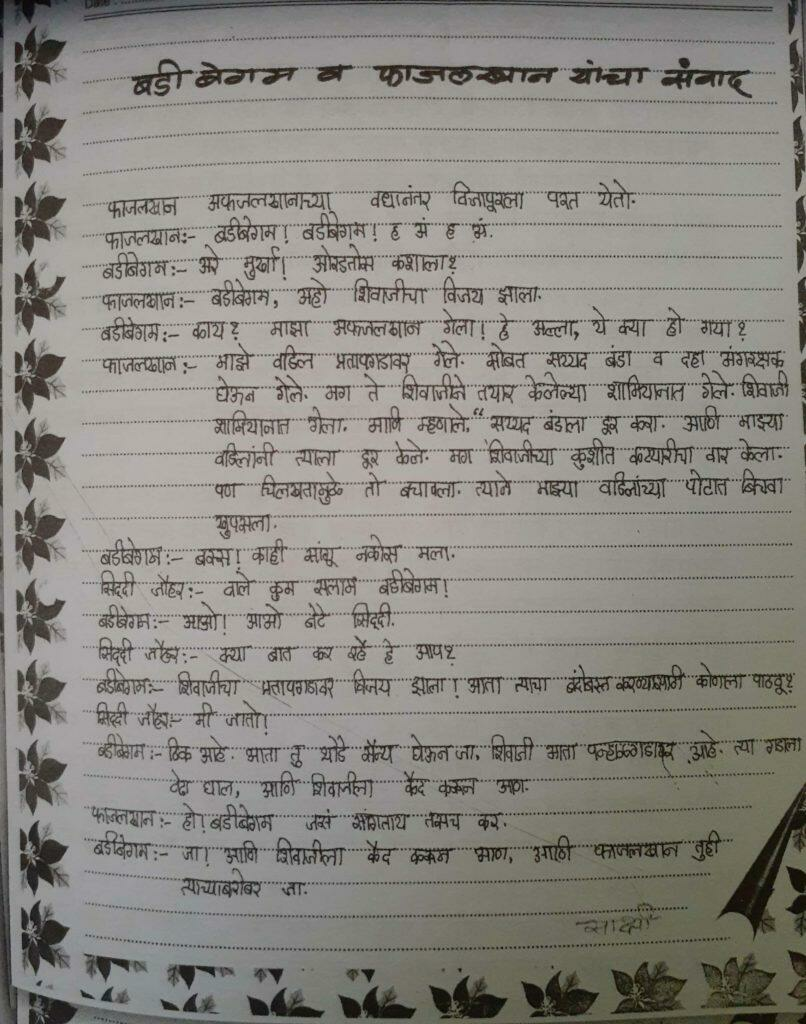 Date :
बडी बेगम व फाजलखान यांचा संवाद
फाजलखान अफजलखानाच्या वधानंतर विजापूरला परत येतो.
फाजलखान:- बडीबेगम! बडीबेगम! ह अं ह अं.
बडीबेगम:- अरे मुर्खा! ओरडतोस कशाला?
फाजलखान:- बडीबेगम, अहो शिवाजीचा विजय झाला.
बडीबेगम:- काय? माझा अफजलखान गेला! हे अल्ला, ये क्या हो गया?
फाजलखान:- माझे वडिल प्रतापगडावर गेले. सोबत सय्यद बंडा व दहा अंगरक्षक
घेऊन गेले. मग ते शिवाजीने तयार केलेल्या शामियानात गेले. शिवाजी
शामियानात गेला. आणि म्हणाले, "सय्यद बंडाला दूर करा. आणि माझ्या
वडिलांनी त्याला दूर केले. मग शिवाजीच्या कुशीत कट्यारीचा वार केला.
पण चिलखतामुळे तो बचावला. त्याने माझ्या वडिलांच्या पोटात बिचवा
खुपसला.
बडीबेगम:- बक्स! काही सांगू नकोस मला.
सिद्दी जौहर:- वाले कुम सलाम बडीबेगम!
बडीबेगम:- आओ! आओ बेटे सिद्दी.
सिद्दी जौहर:- क्या बात कर रहे हे आप?
बडीबेगम:- शिवाजीचा प्रतापगडावर विजय झाला! आता त्याचा बंदोबस्त करण्यासाठी कोणाला पाठवू?
सिद्दी जौहर:- मी जातो!
बडीबेगम:- ठिक आहे. आता तु थोडे सैन्य घेऊन जा, शिवाजी आता पन्हाळगडावर आहे. त्या गडाला
वेढा घाल, आणि शिवाजीला कैद करून आण.
फाजलखान:- हो! बडीबेगम जसं सांगताय तसच कर.
बडीबेगम:- जा! आणि शिवाजीला कैद करून आण, आणि फाजलखान तुही
त्याच्याबरोबर जा.